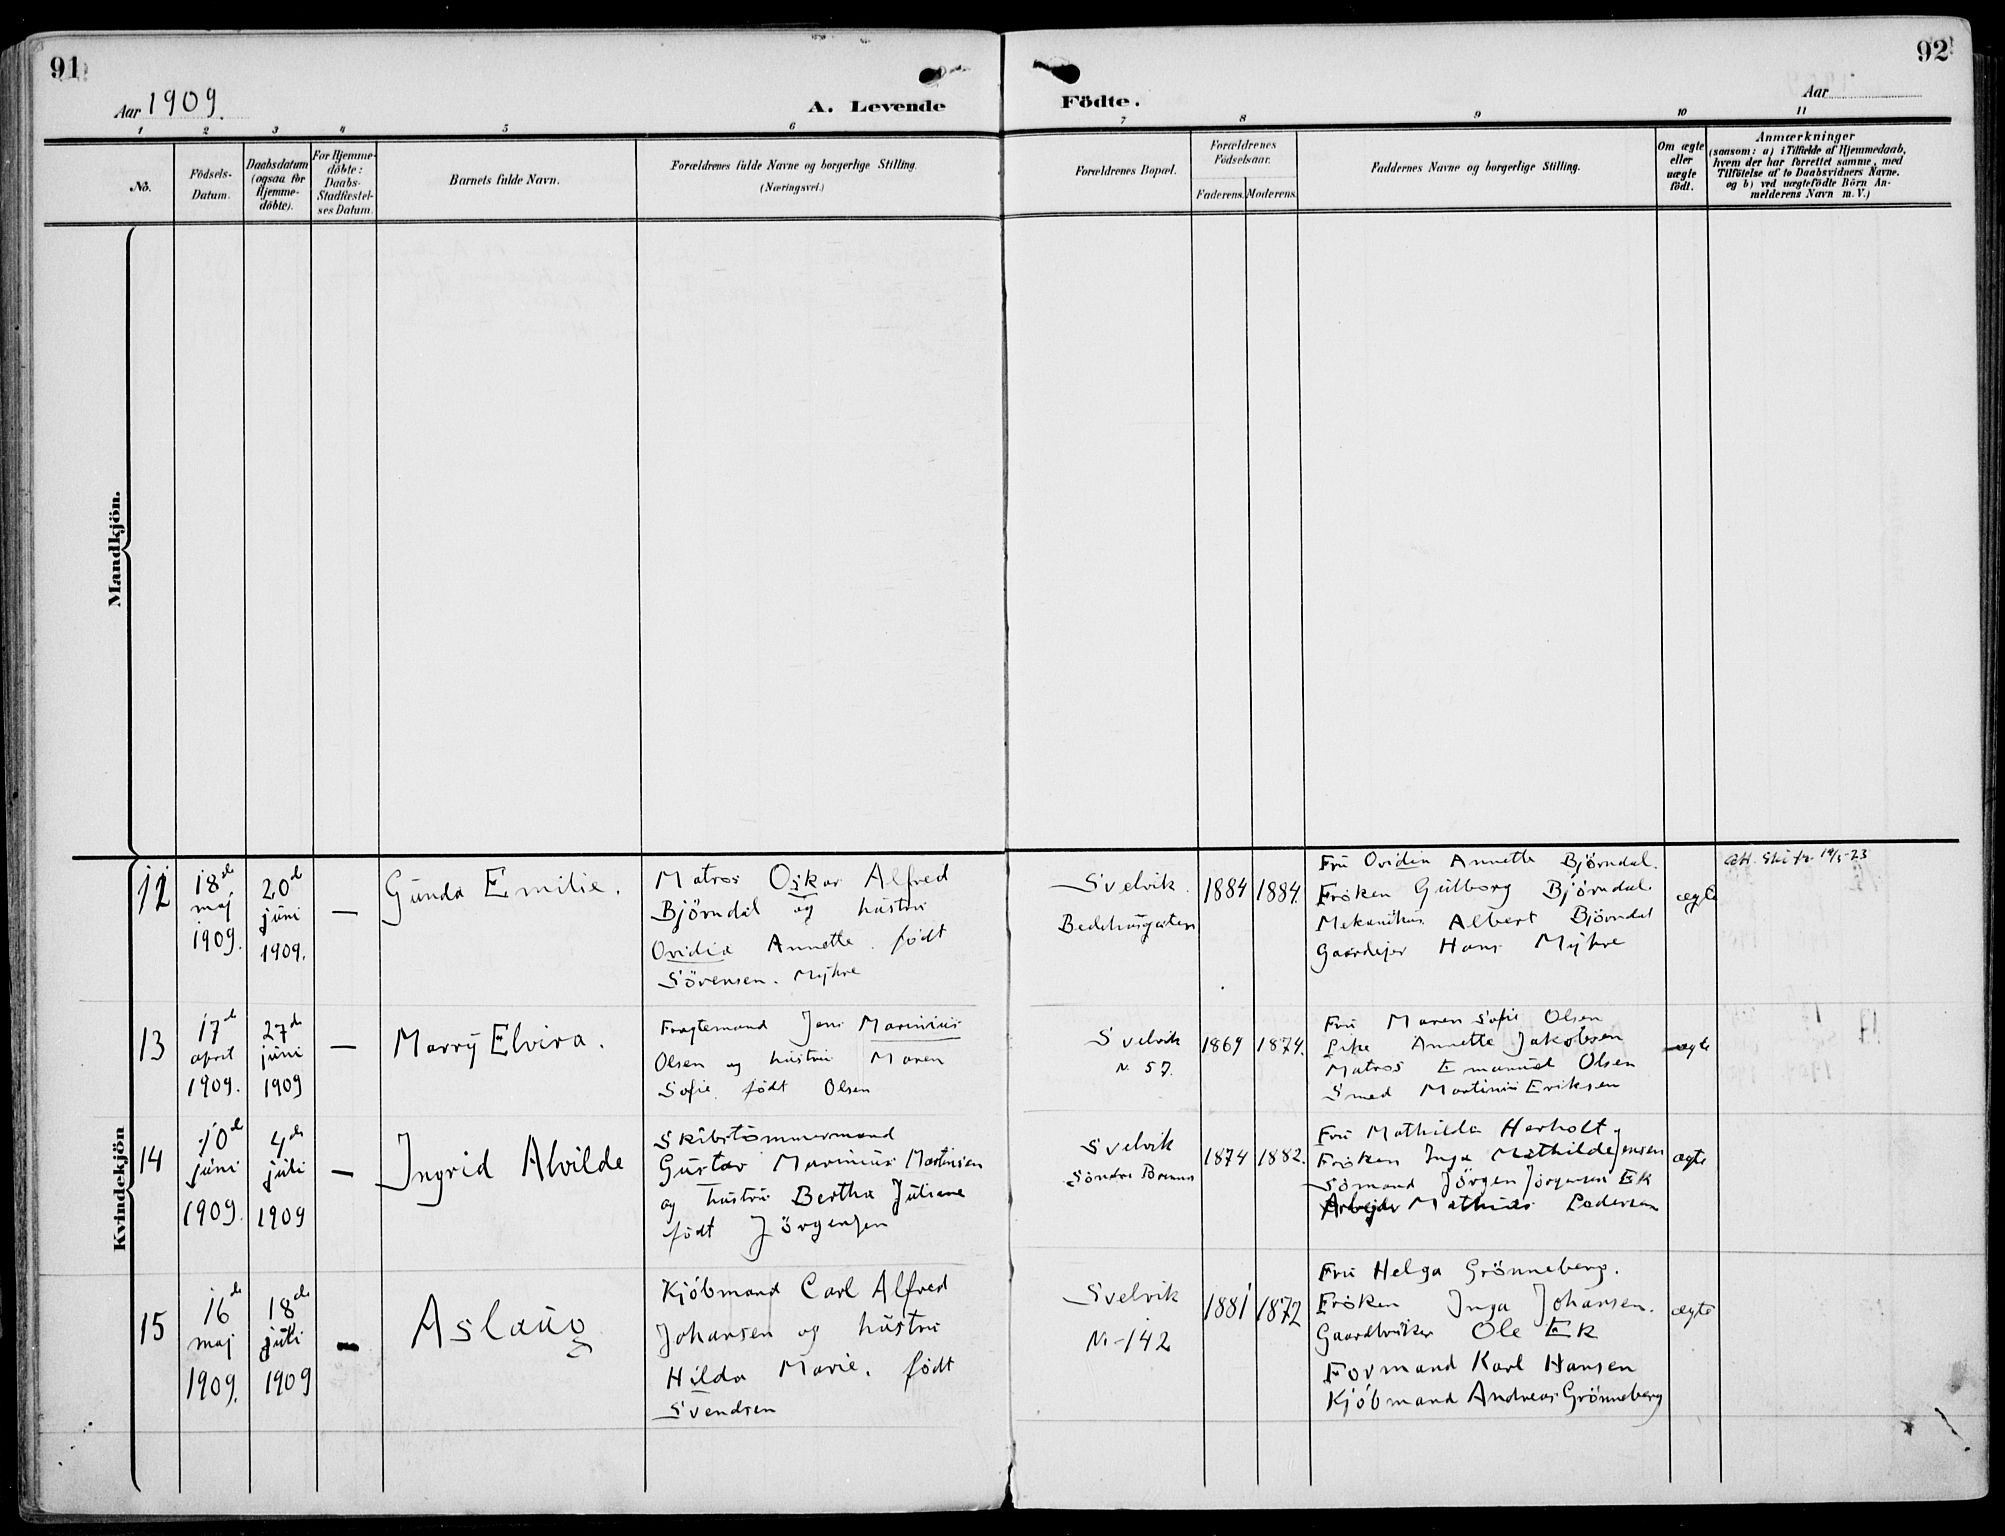 91
92
Aar 1909.
A. Levende
Födte.
Aar
1 2 3 4 5 6 7 8 9 10 11
No.
Födsels-
Datum.
Daabsdatum
(ogsaa for
Hjemme-
döbte).
For Hjemme-
döbte:
Daabs-
Stadfæstel-
ses Datum.
Barnets fulde Navn.
Forældrenes fulde Navne og borgerlige Stilling.
(Næringsvei.)
Forældrenes Bopæl.
Forældrenes
Födselsaar.
Faderens. Moderens.
Faddernes Navne og borgerlige Stilling.
Om ægte
eller
uægte
födt.
Anmærkninger
(saasom: a) i Tilfælde af Hjemmedaab,
hvem der har forrettet samme, med
Tilföielse af to Daabsvidners Navne.
og b) ved uægtefödte Börn An-
melderens Navn m. V.)
Mandkjön.
Kvindekjön
12
18de
maj
1909.
20de
juni
1909.
—
Gunda Emilie.
Matros Oskar Alfred
Björndal og hustru
Ovidia Annette. födt
Sörensen. Myhre
Svelvik.
1884
1884.
Fru Ovidia Annette Björndal.
Fröken Gulborg Björndal.
Mekanikus Albert Björndal
Gaardejer Hans Myhre
ægte
13
17de
april
1909.
27de
juni
1909
—
Marry Elvira.
Fragtemand Jens Marinius
Olsen og hustru Maren
Sofie. födt Olsen
Svelvik
N. 57.
1869
1874.
Fru Maren Sofie Olsen
Pike Annette Jakobsen
Matros Emanuel Olsen
Smed Martinus Eriksen
ægte
14
10de
juni
1909.
4de
juli
1909
—
Ingrid Alvilde
Skibstömmermand
Gustav Marinius Martinsen
og hustru Bertha Juliane
födt Jörgensen
Svelvik
Söndre
1874
1882.
Fru Mathilda Harholt
Fröken Inga Mathilde Jensen
Sömand Jörgen Jörgensen Ek
Arbejder Mathias Pedersen
ægte
15
16de
maj
1909.
18de
juli
1909
—
Aslaug
Kjöbmand Carl Alfred
Johansen og hustru
Hilda Marie. födt
Svendsen
Svelvik
N. 142
1881
1872
Fru Helga Grönneberg.
Fröken Inga Johansen.
Gaardbruker Ole Ek
Formand Karl Hansen
Kjöbmand Andreas Grönneberg
ægte